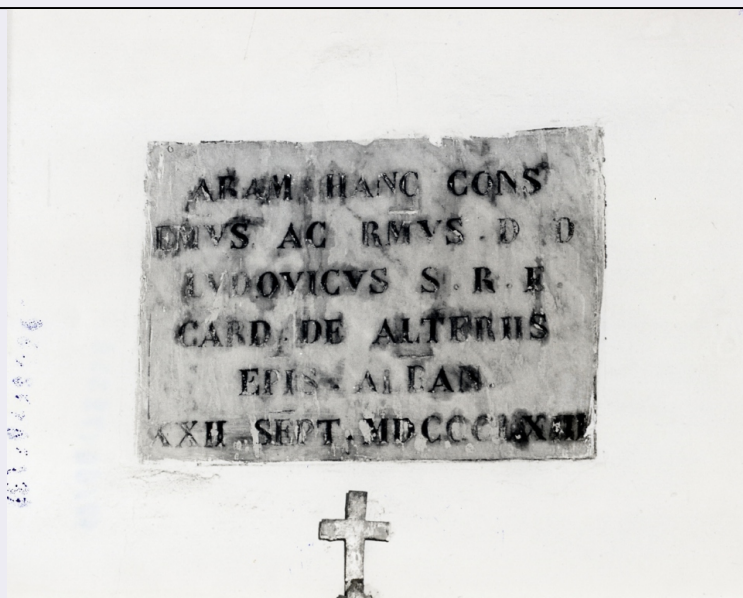 ARAM HANC CONS
EMVS AC RMVS . D . D
LVDOVICVS S . R . E .
CARD . DE ALTERIIS
EPIS . ALBAN .
XXII . SEPT .